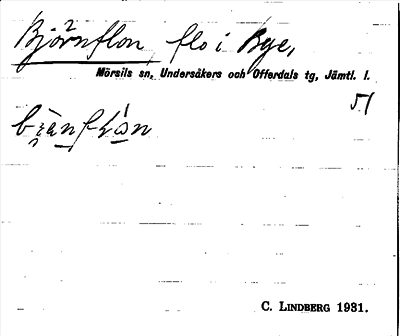 Björnflon, flo i Bye,
Mörsils sn, Undersåkers och Offerdals tg, Jämtl. l.
51
C. LINDBERG 1931.